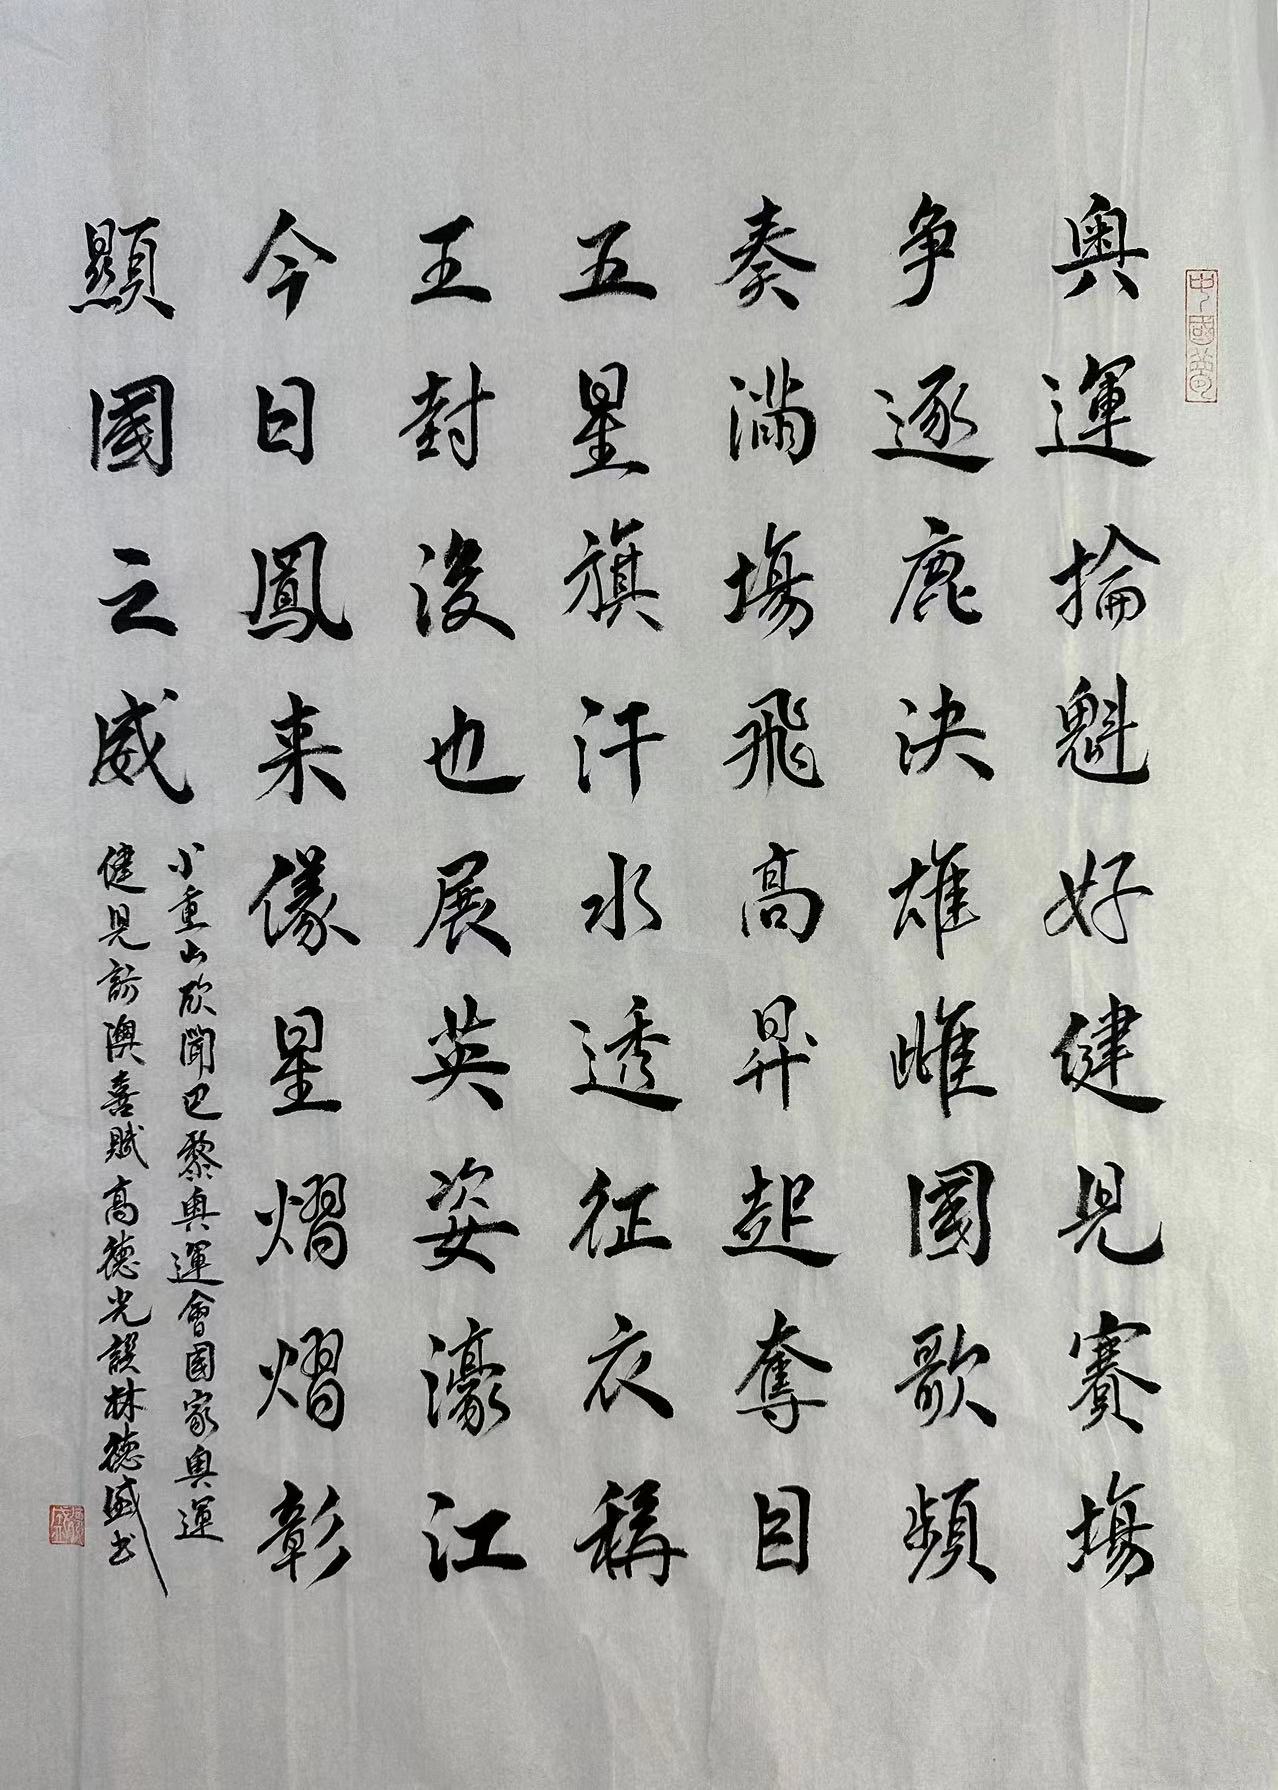 中國夢
奧運掄魁好健兒賽場
争逐鹿決雄雌國歌頻
奏滿場飛高昇起奪目
五星旗汗水透征衣稱
王封後也展英姿濠江
今日鳳来儀星熠熠彰
顯國之威
小重山欣聞巴黎奧運會國家奧運
健兒訪澳喜賦高德光譔林德盛书